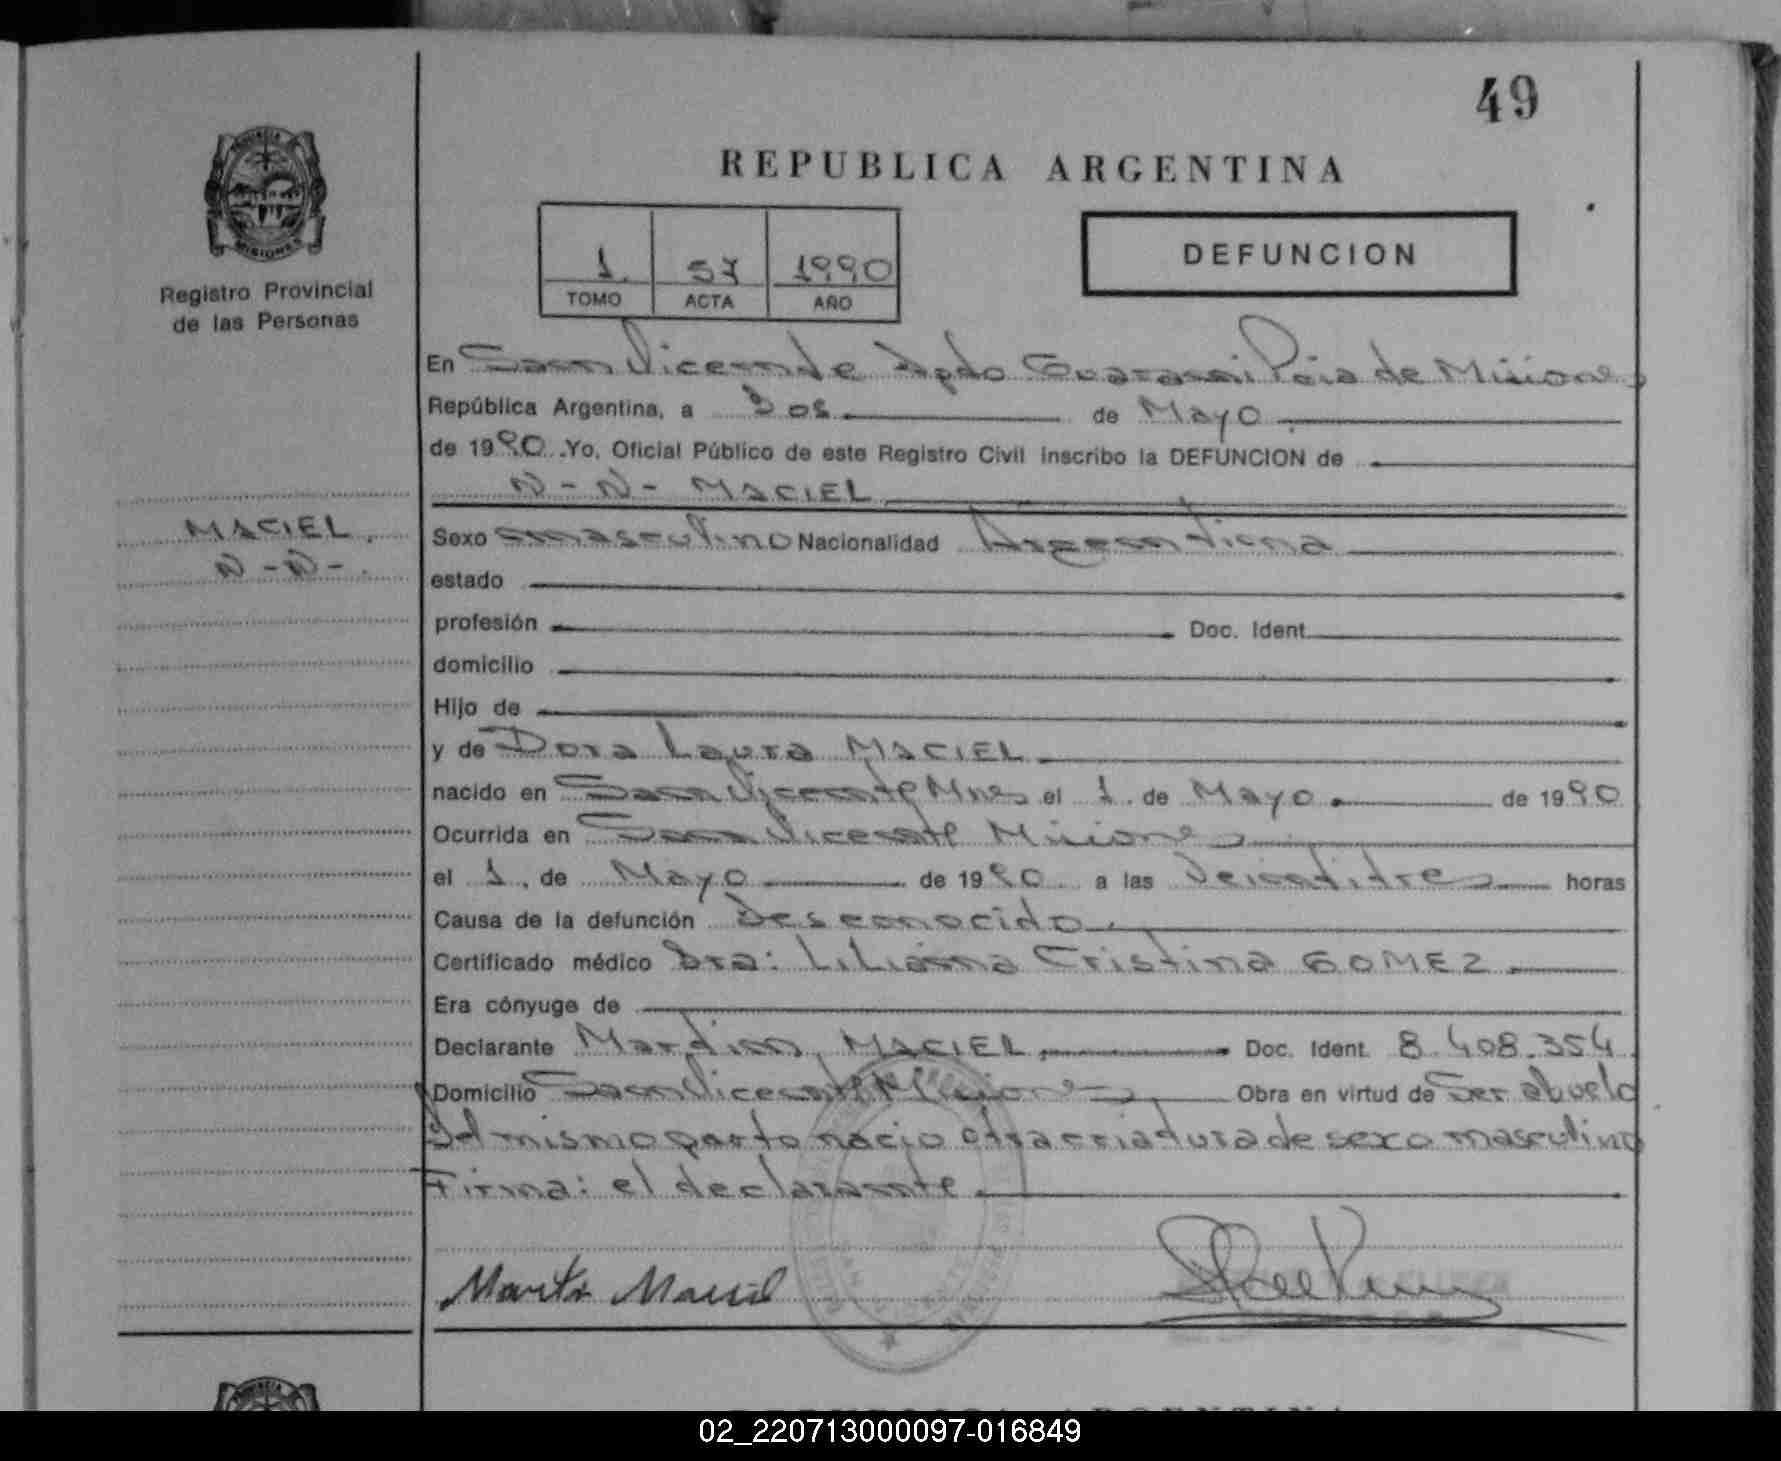 49
PROVINCIA
MISIONES
Registro Provincial
de las Personas
REPUBLICA ARGENTINA
1 57 1990
TOMO ACTA AÑO
DEFUNCION
En San Vicente Dpdo Guarani Pcia de Misiones
República Argentina, a Dos de Mayo
de 1990. Yo, Oficial Público de este Registro Civil inscribo la DEFUNCION de
N - N - MACIEL
MACIEL.
N - N -.
Sexo masculino Nacionalidad Argentina
estado
profesión Doc. Ident.
domicilio
Hijo de
y de Dora Laura MACIEL
nacido en San Vicente Mnes el 1. de Mayo de 1990
Ocurrida en San Vicente Misiones
el 1. de Mayo de 1990 a las Veintitres horas
Causa de la defunción Desconocido.
Certificado médico Dra: Liliana Cristina GOMEZ.
Era cónyuge de
Declarante Martin, MACIEL, Doc. Ident. 8.408.354.
Domicilio San Vicente Misiones Obra en virtud de Ser abuelo
mismo parto nacio otra criatura de sexo masculino
Firma: el declarante.
Martin Maciel
REPUBLICA ARGENTINA
02_220713000097-016849